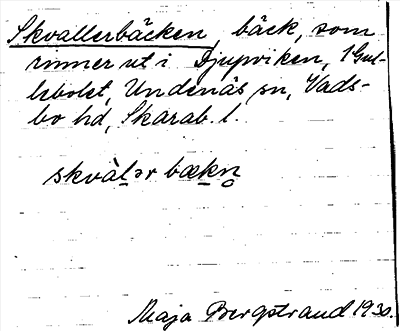 Skvallerbäcken, bäck, som
rinner ut i Djupviken, 1 Gul-
lebolet, Undenäs sn, Vads-
bo hd, Skarab. l.
skvàlər bækn̥
Maja Bergstrand 1930.